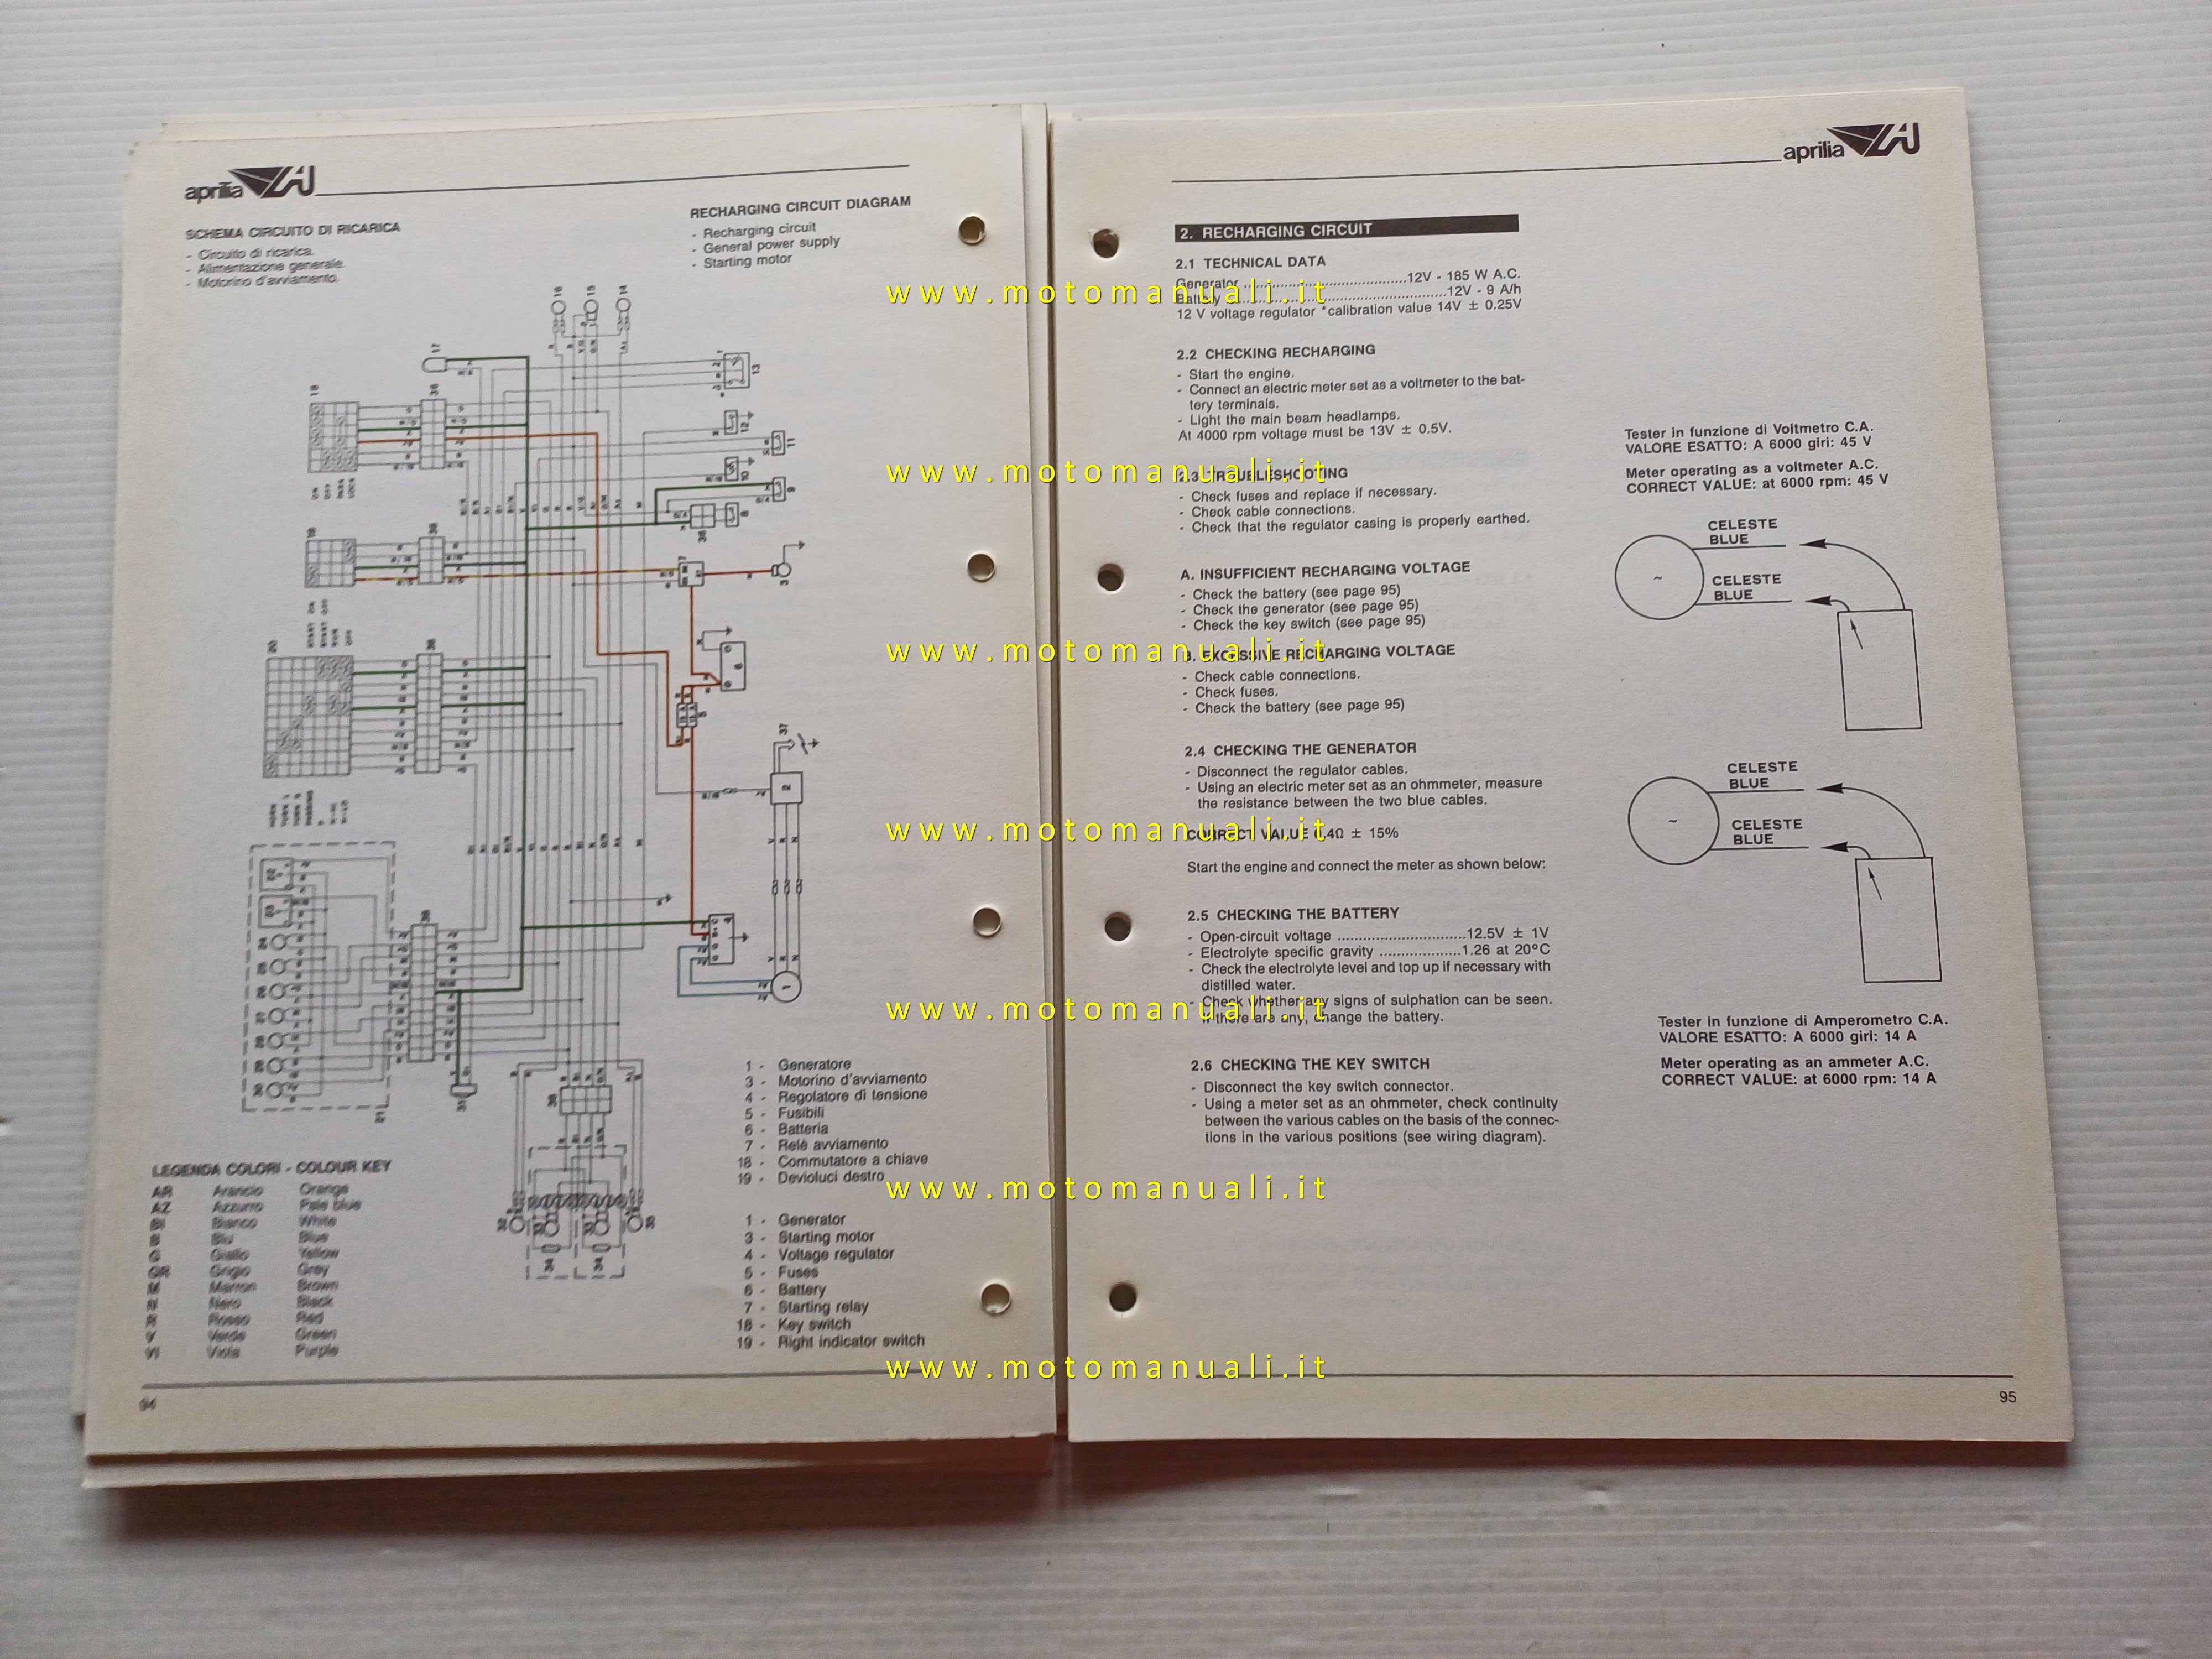 aprilia
SCHEMA CIRCUITO DI RICARICA
- Circuito di ricarica.
- Alimentazione generale.
- Motorino d'avviamento.
RECHARGING CIRCUIT DIAGRAM
- Recharging circuit
- General power supply
- Starting motor
16
15
14
17
13
18
36
12
11
10
9
8
19
7
3
20
6
5
37
2
4
1
31
21
34
34
1 - Generatore
3 - Motorino d'avviamento
4 - Regolatore di tensione
5 - Fusibili
6 - Batteria
7 - Relè avviamento
18 - Commutatore a chiave
19 - Devioluci destro
1 - Generator
3 - Starting motor
4 - Voltage regulator
5 - Fuses
6 - Battery
7 - Starting relay
18 - Key switch
19 - Right indicator switch
LEGENDA COLORI - COLOUR KEY
AR Arancio Orange
AZ Azzurro Pale blue
BI Bianco White
B Blu Blue
G Giallo Yellow
GR Grigio Grey
M Marron Brown
N Nero Black
R Rosso Red
V Verde Green
VI Viola Purple
94
aprilia
2. RECHARGING CIRCUIT
2.1 TECHNICAL DATA
Generator ..........................................12V - 185 W A.C.
Battery ......................................................12V - 9 A/h
12 V voltage regulator *calibration value 14V ± 0.25V
2.2 CHECKING RECHARGING
- Start the engine.
- Connect an electric meter set as a voltmeter to the bat-
tery terminals.
- Light the main beam headlamps.
At 4000 rpm voltage must be 13V ± 0.5V.
2.3 TROUBLESHOOTING
- Check fuses and replace if necessary.
- Check cable connections.
- Check that the regulator casing is properly earthed.
A. INSUFFICIENT RECHARGING VOLTAGE
- Check the battery (see page 95)
- Check the generator (see page 95)
- Check the key switch (see page 95)
B. EXCESSIVE RECHARGING VOLTAGE
- Check cable connections.
- Check fuses.
- Check the battery (see page 95)
2.4 CHECKING THE GENERATOR
- Disconnect the regulator cables.
- Using an electric meter set as an ohmmeter, measure
the resistance between the two blue cables.
CORRECT VALUE 0.4Ω ± 15%
Start the engine and connect the meter as shown below:
2.5 CHECKING THE BATTERY
- Open-circuit voltage ..............................12.5V ± 1V
- Electrolyte specific gravity ...................1.26 at 20°C
- Check the electrolyte level and top up if necessary with
distilled water.
- Check whether any signs of sulphation can be seen.
If there are any, change the battery.
2.6 CHECKING THE KEY SWITCH
- Disconnect the key switch connector.
- Using a meter set as an ohmmeter, check continuity
between the various cables on the basis of the connec-
tions in the various positions (see wiring diagram).
Tester in funzione di Voltmetro C.A.
VALORE ESATTO: A 6000 giri: 45 V
Meter operating as a voltmeter A.C.
CORRECT VALUE: at 6000 rpm: 45 V
CELESTE
BLUE
CELESTE
BLUE
~
CELESTE
BLUE
CELESTE
BLUE
~
Tester in funzione di Amperometro C.A.
VALORE ESATTO: A 6000 giri: 14 A
Meter operating as an ammeter A.C.
CORRECT VALUE: at 6000 rpm: 14 A
95
www.motomanuali.it
www.motomanuali.it
www.motomanuali.it
www.motomanuali.it
www.motomanuali.it
www.motomanuali.it
www.motomanuali.it